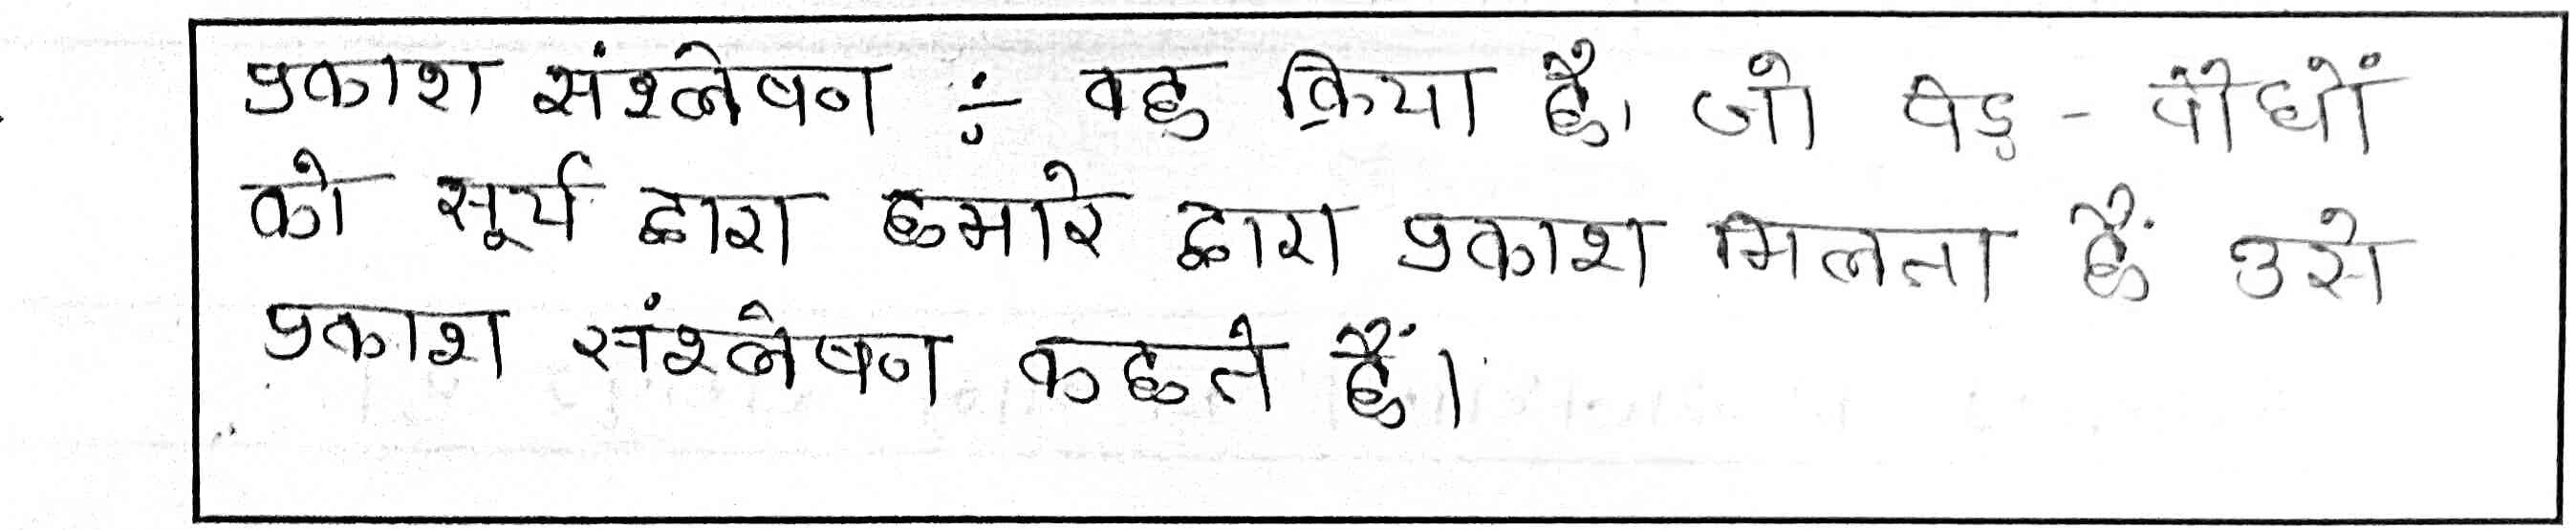 प्रकाश संश्लेषण ÷ वह क्रिया है। जो पेड़ - पौधों
को सूर्य द्वारा हमारे द्वारा प्रकाश मिलता हैं उसे
प्रकाश संश्लेषण कहते हैं।